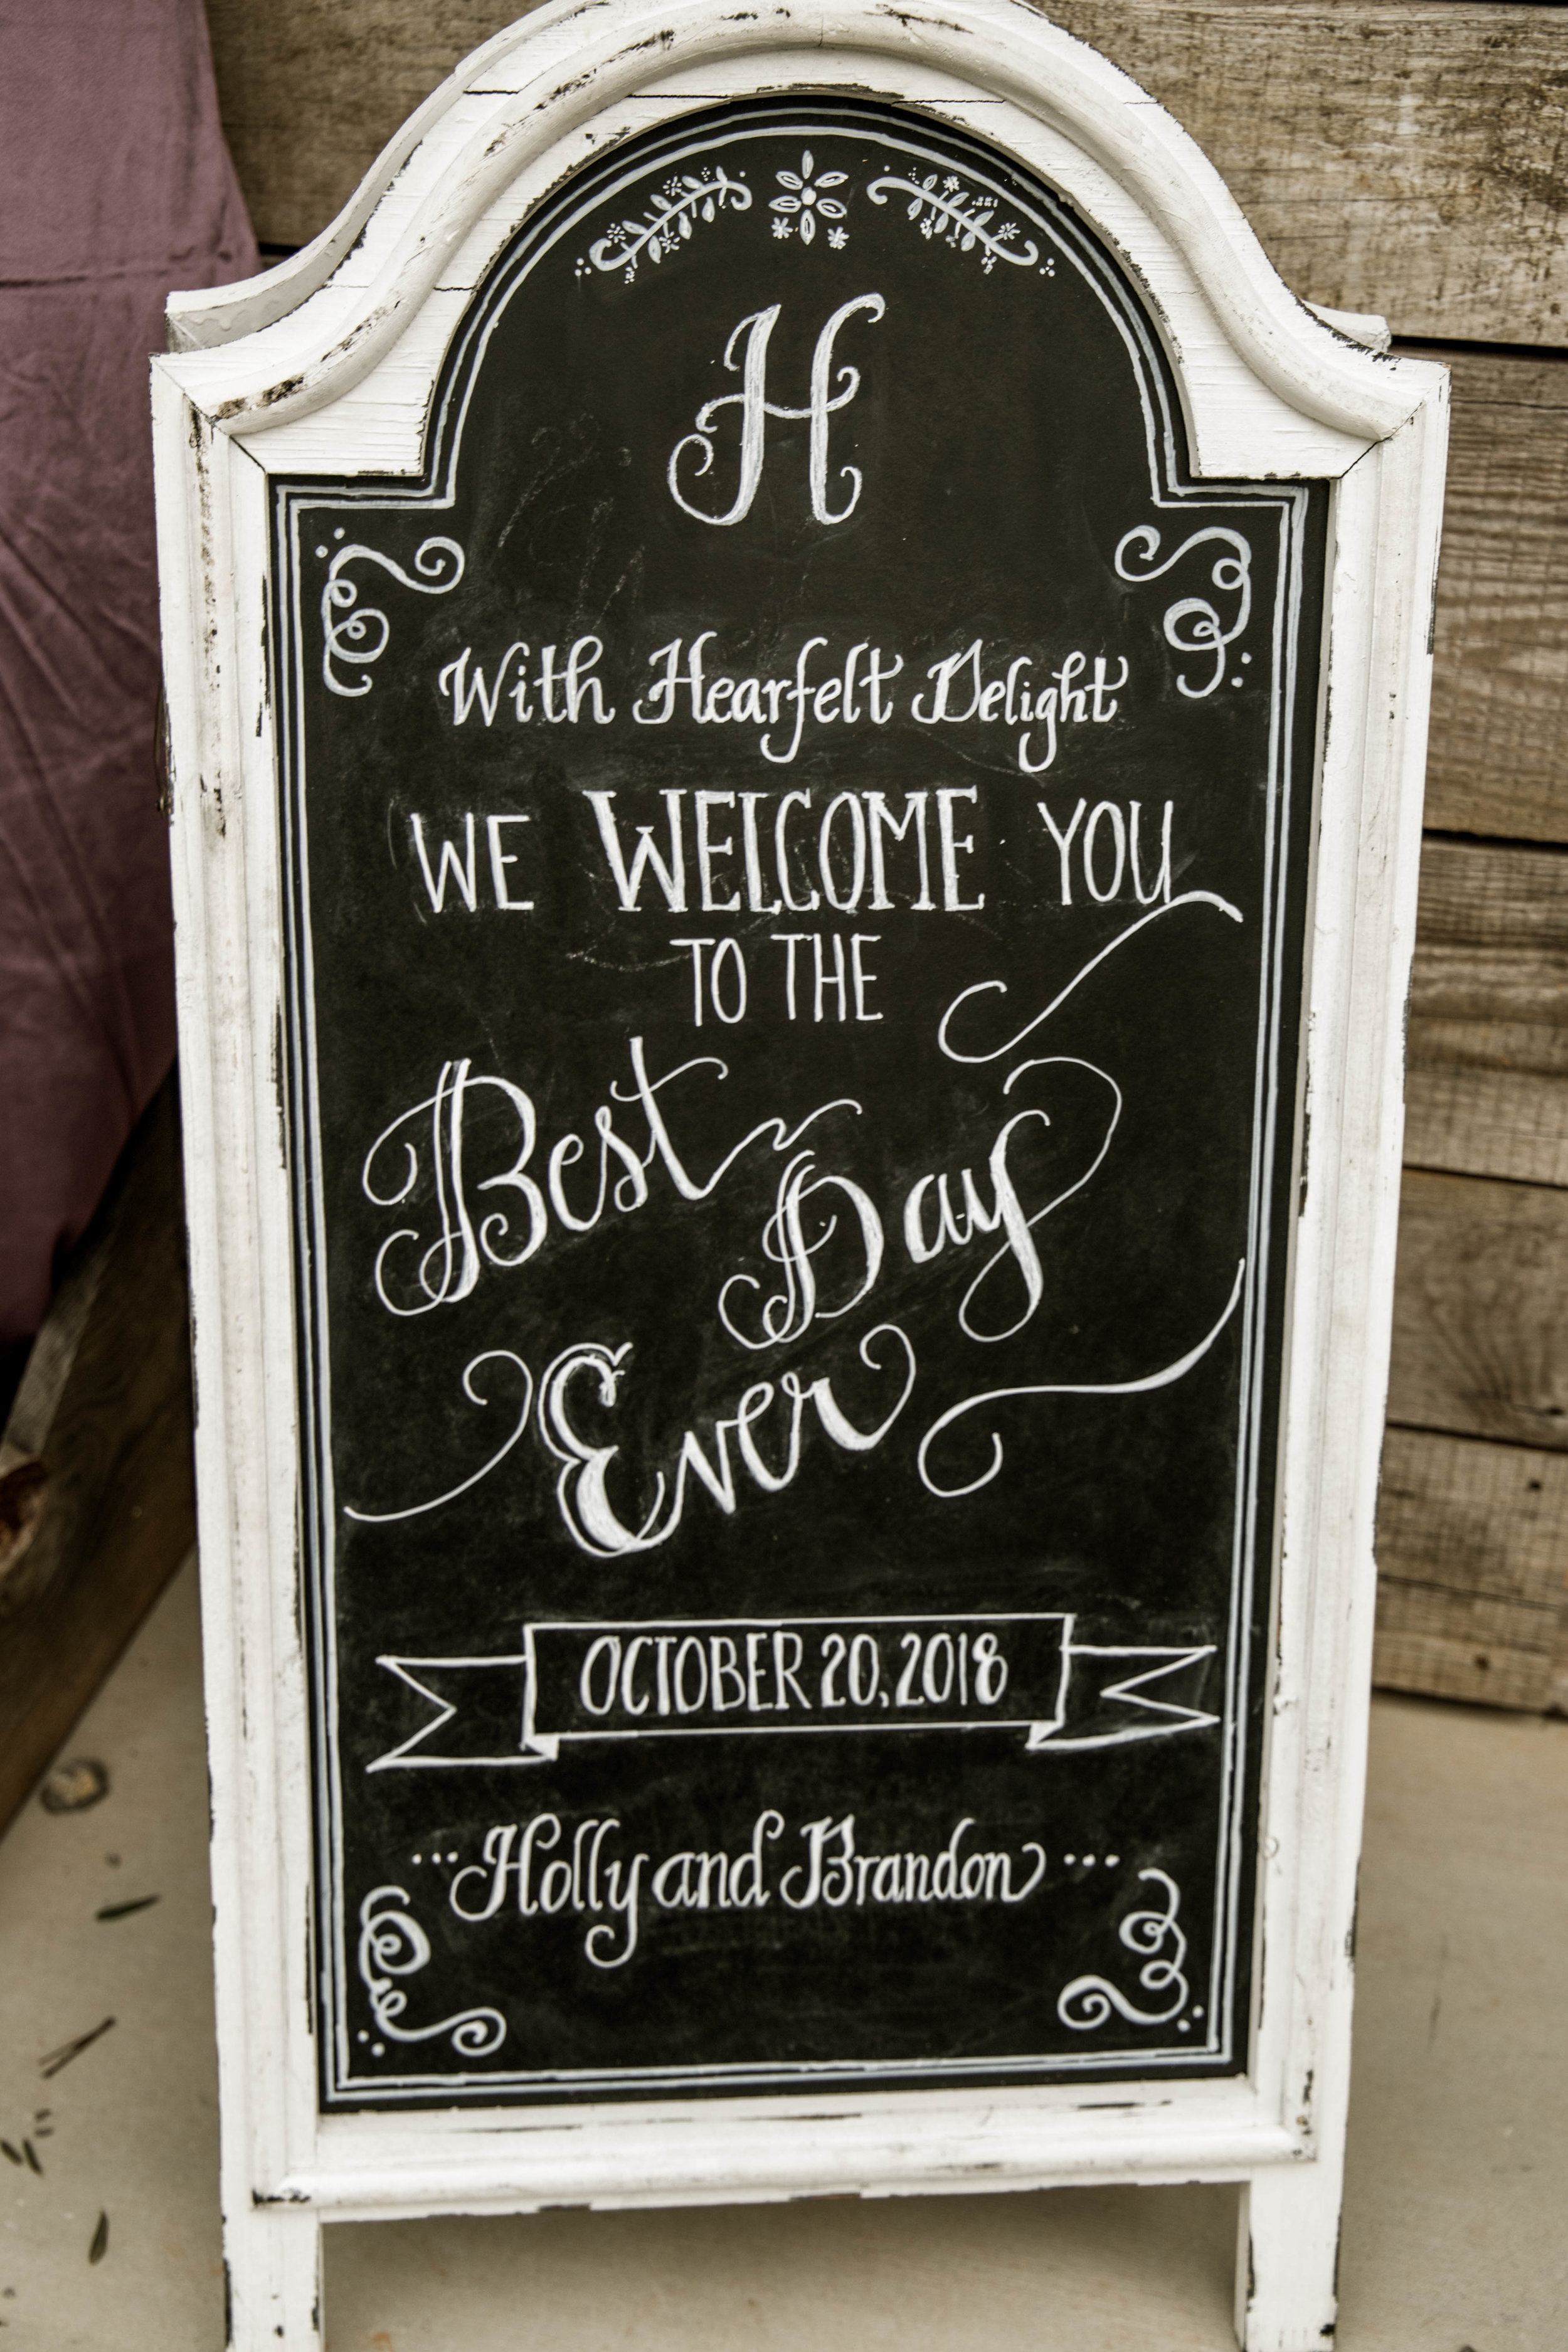 H
With Hearfelt Delight
WE WELCOME YOU
TO THE
Best
Day
Ever
OCTOBER 20, 2018
...Holly and Brandon...